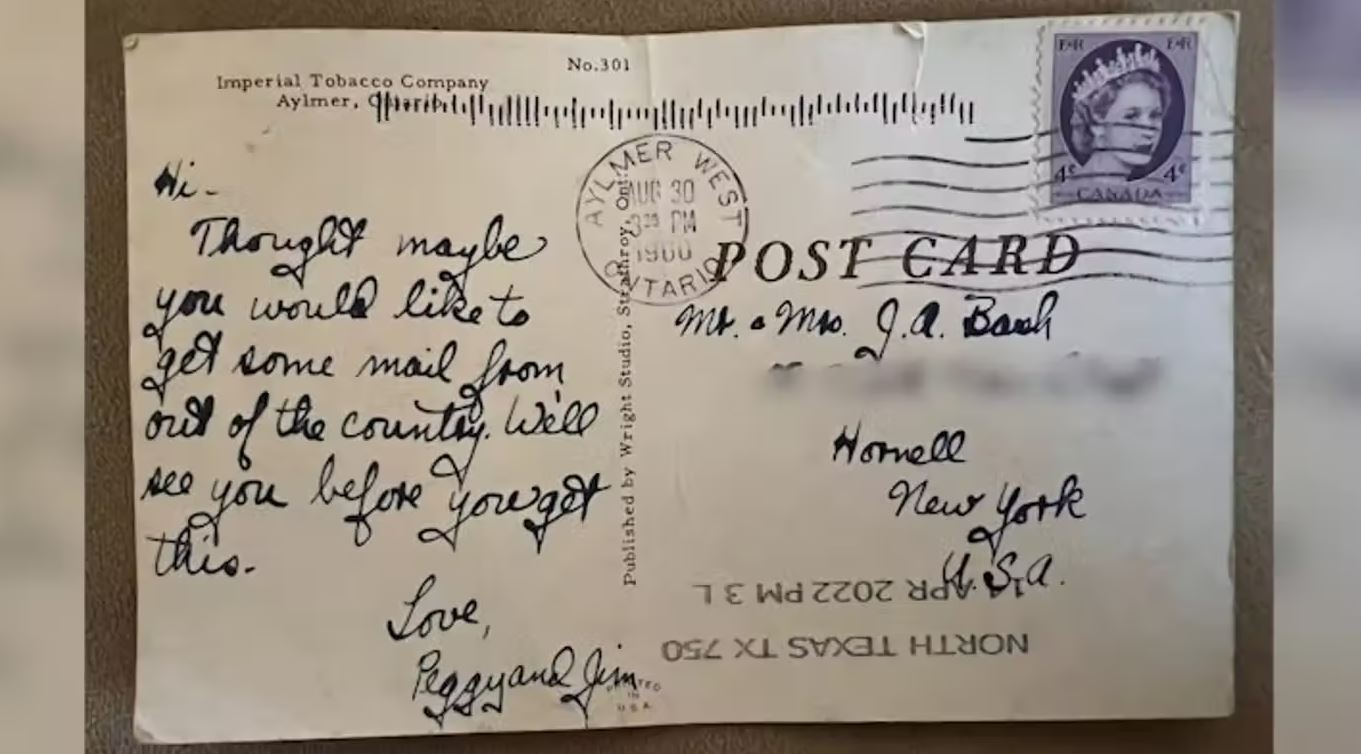 No.301
Imperial Tobacco Company
Aylmer, Ontario
Hi-
Thought maybe
you would like to
get some mail from
out of the country. We'll
see you before you get
this.
Love,
Peggy and Jim
Published by Wright Studio, Strathroy, Ont.
AYLMER WEST
AUG 30
PM
1960
ONTARIO
E R E R
4¢ 4¢
CANADA
POST CARD
Mr. & Mrs. J.A.
Hornell
New York
U.S.A.
NORTH TEXAS TX 750
APR 2022 PM 3 L
PRINTED
IN
U.S.A.